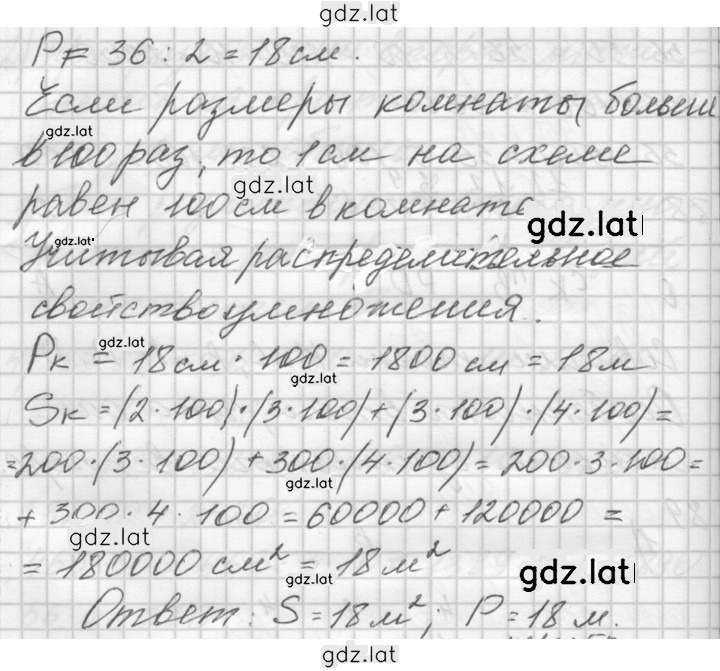 gdz.lat
P = 36 : 2 = 18 см.
Если размеры комнаты больш
gdz.lat
в 100 раз, то 1 см на схеме
gdz.lat
равен 100 см в комнате
gdz.lat
gdz.lat
Учитывая распределительное
свойство умножения.
gdz.lat
Pк = 18 см · 100 = 1800 см = 18 м
gdz.lat
Sк = (2 · 100) · (3 · 100) + (3 · 100) · (4 · 100) =
= 200 · (3 · 100) + 300 · (4 · 100) = 200 · 3 · 100 =
gdz.lat
+ 300 · 4 · 100 = 60000 + 120000 =
gdz.lat
= 180000 см² = 18 м²
gdz.lat
gdz.lat
Ответ: S = 18 м²; P = 18 м.
gdz.lat